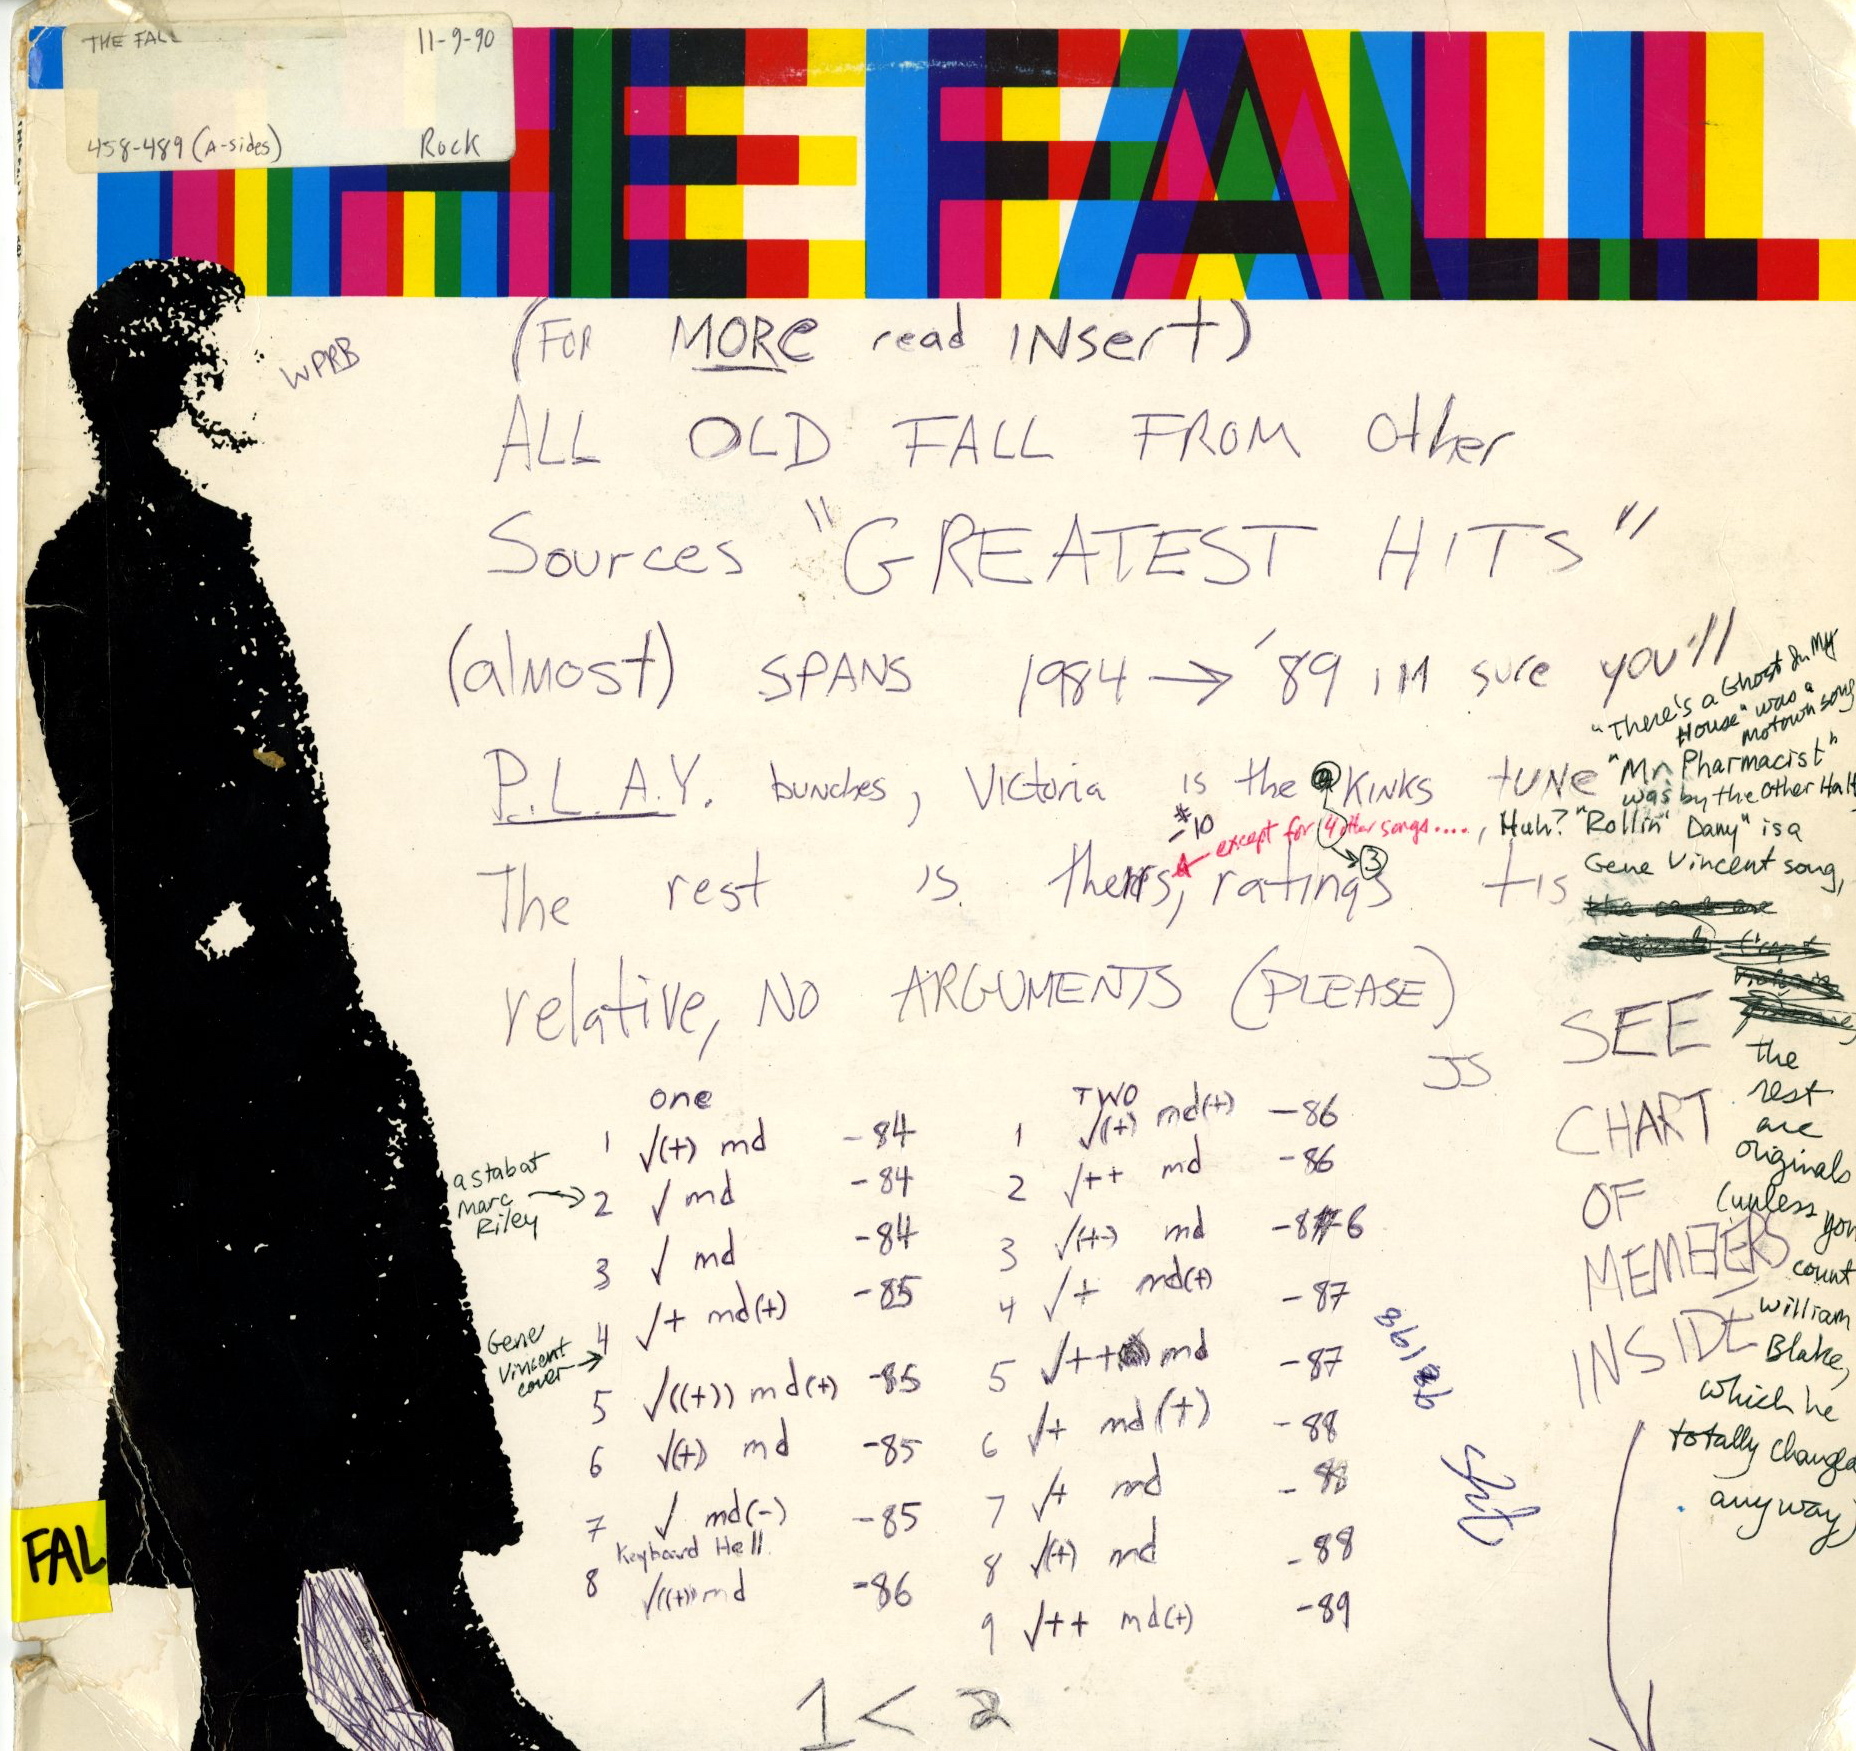 THE FALL 11-9-90
458-489 (A-sides) Rock
THE FALL
WPRB
(FOR MORE read INsert)
ALL OLD FALL FROM Other
Sources "GREATEST HITS"
(almost) SPANS 1984 → '89 IM sure you'll
P.L.A.Y. bunches, Victoria is the KINKS tUNE
#10
except for 4 other songs...., Huh?
3
The rest is theirs, ratings tis
relative, NO ARGUMENTS (PLEASE)
JS
"There's a Ghost In My
House" was a
Motown song
"Mr. Pharmacist"
was by the Other Half
"Rollin' Dany" is a
Gene Vincent song,
the
rest
are
originals
(unless you
count
William
Blake,
which he
totally changed
anyway)
SEE
CHART
OF
MEMBERS
INSIDE
one
1 √(+) md -84
2 √ md -84
3 √ md -84
4 √+ md(+) -85
5 √((+)) md(+) -85
6 √(+) md -85
7 √ md(-) -85
Keyboard Hell
8 √((+)) md -86
a stab at
Marc
Riley →
Gene
Vincent
cover →
TWO
1 √(+) md(+) -86
2 √++ md -86
3 √(+) md -86
4 √+ md(+) -87
5 √++ md -87
6 √+ md(+) -88
7 √+ md -88
8 √(+) md -88
9 √++ md(+) -89
1 < 2
FAL